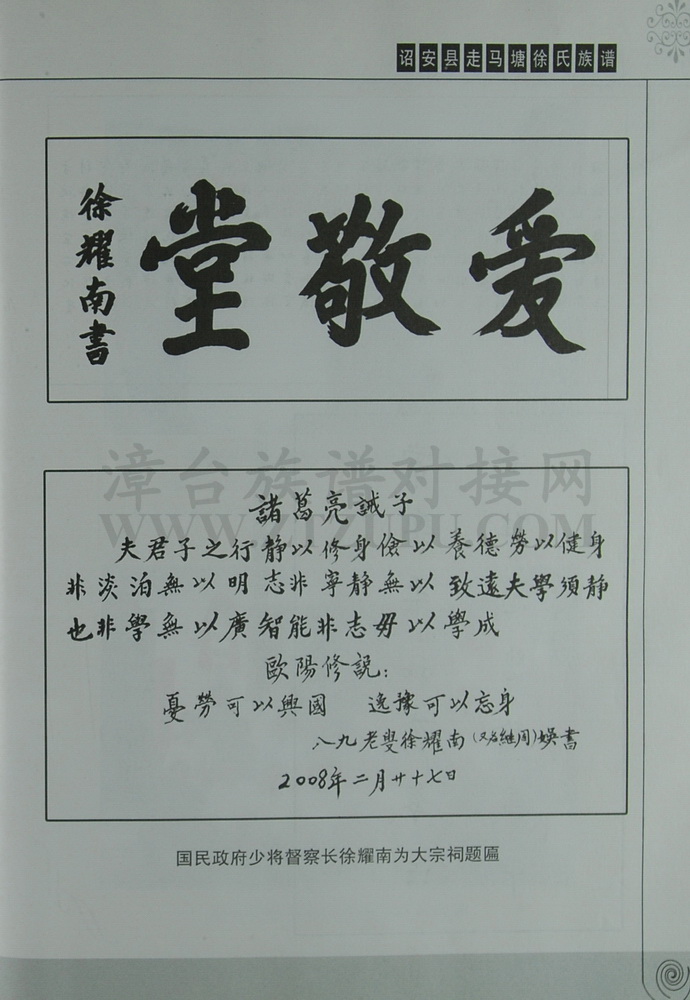 诏安县走马塘徐氏族谱
爱敬堂
徐耀南書
漳台族谱对接网
WWW.ZTZUPU.COM
諸葛亮誡子
夫君子之行静以修身儉以養德勞以健身
非淡泊無以明志非寧静無以致遠夫學須静
也非學無以廣智能非志毋以學成
歐陽修説：
憂勞可以興國 逸豫可以忘身
八九老叟徐耀南（又名継周）娛書
2008年二月廿十七日
国民政府少将督察长徐耀南为大宗祠题匾